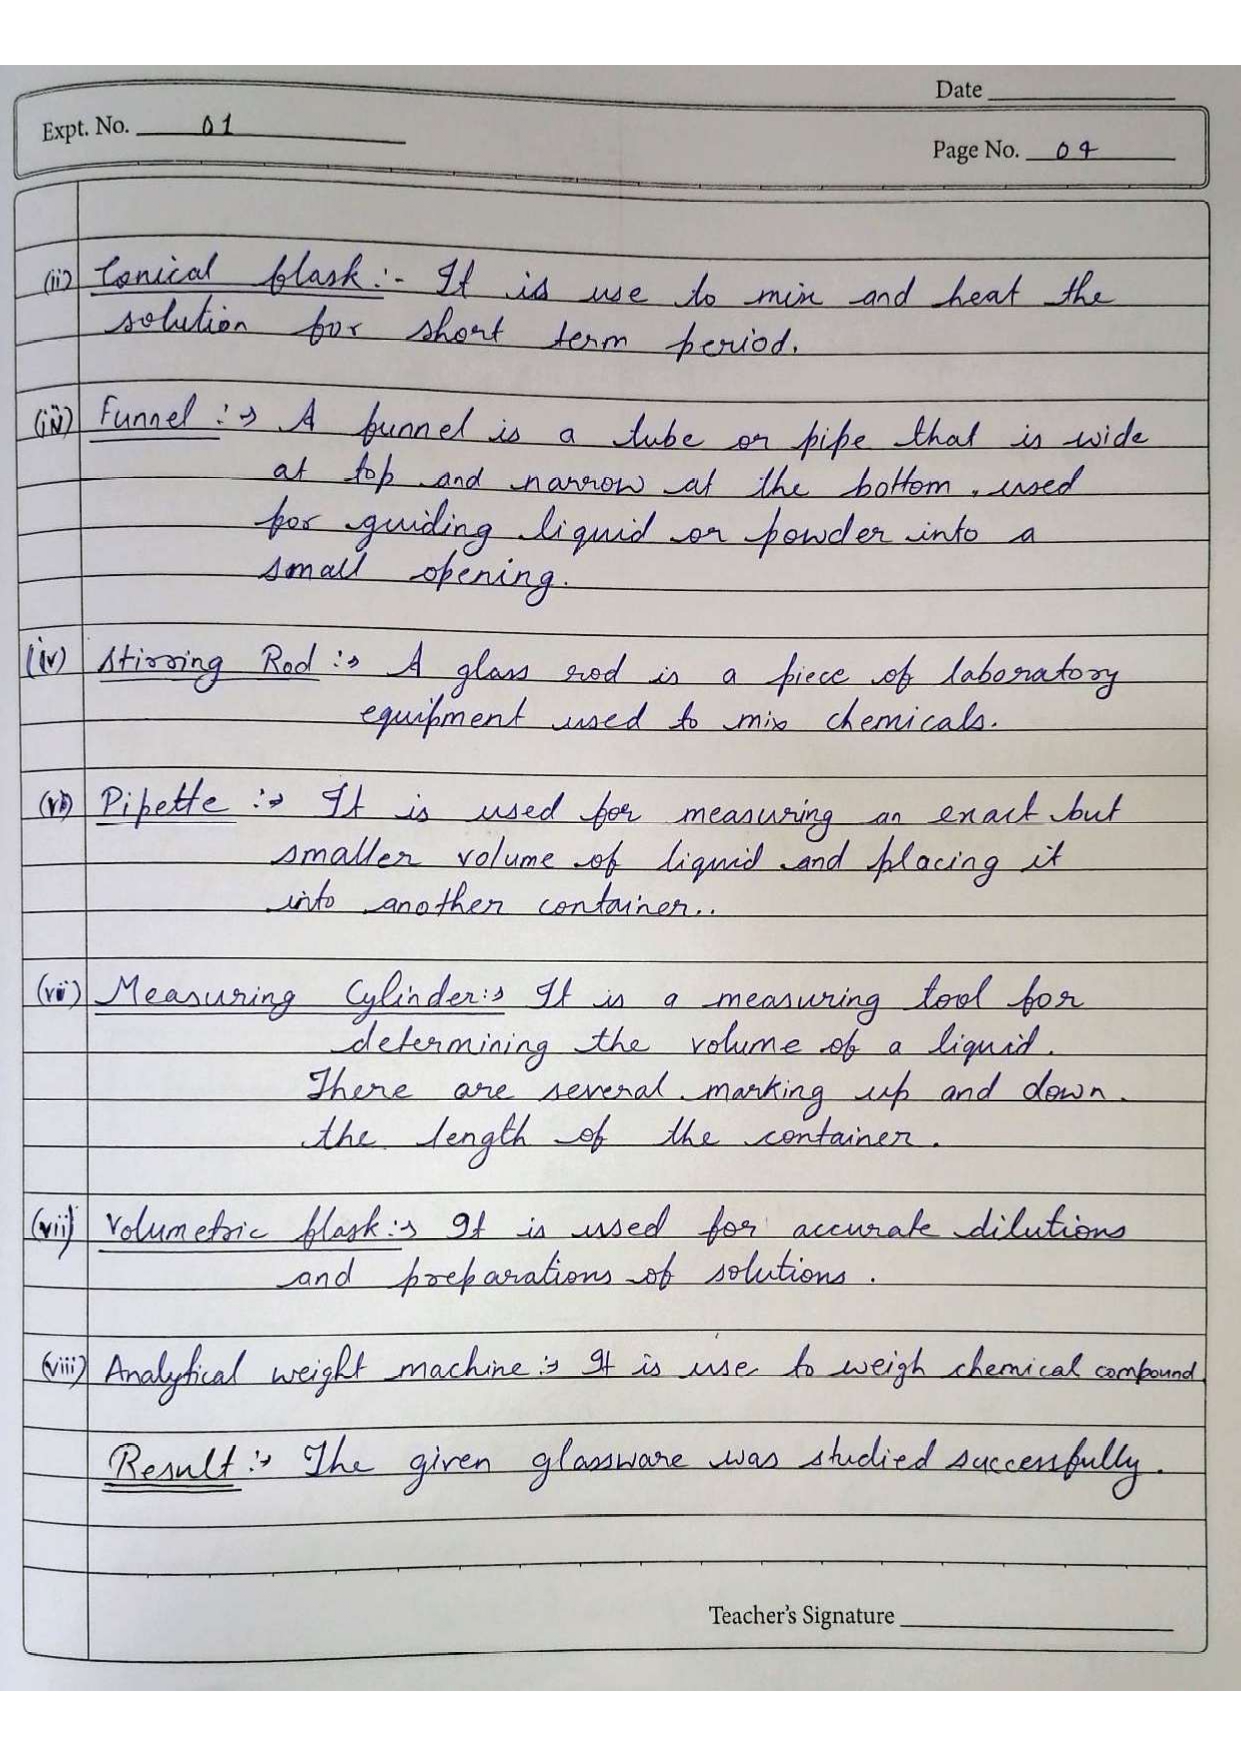 Date
Expt. No. 01
Page No. 04
(ii) Conical flask :- It is use to mix and heat the
solution for short term period.
Funnel :→ A funnel is a tube or pipe that is wide
at top and narrow at the bottom, used
for guiding liquid or powder into a
small opening.
(iv) Stirring Rod :→ A glass rod is a piece of laboratory
equipment used to mix chemicals.
Pipette :→ It is used for measuring an exact but
smaller volume of liquid and placing it
into another container..
Measuring Cylinder :→ It is a measuring tool for
determining the volume of a liquid.
There are several marking up and down
the length of the container.
(vii) Volumetric flask :→ It is used for accurate dilutions
and preparations of solutions.
(viii) Analytical weight machine :→ It is use to weigh chemical compound.
Result :→ The given glassware was studied successfully.
Teacher's Signature